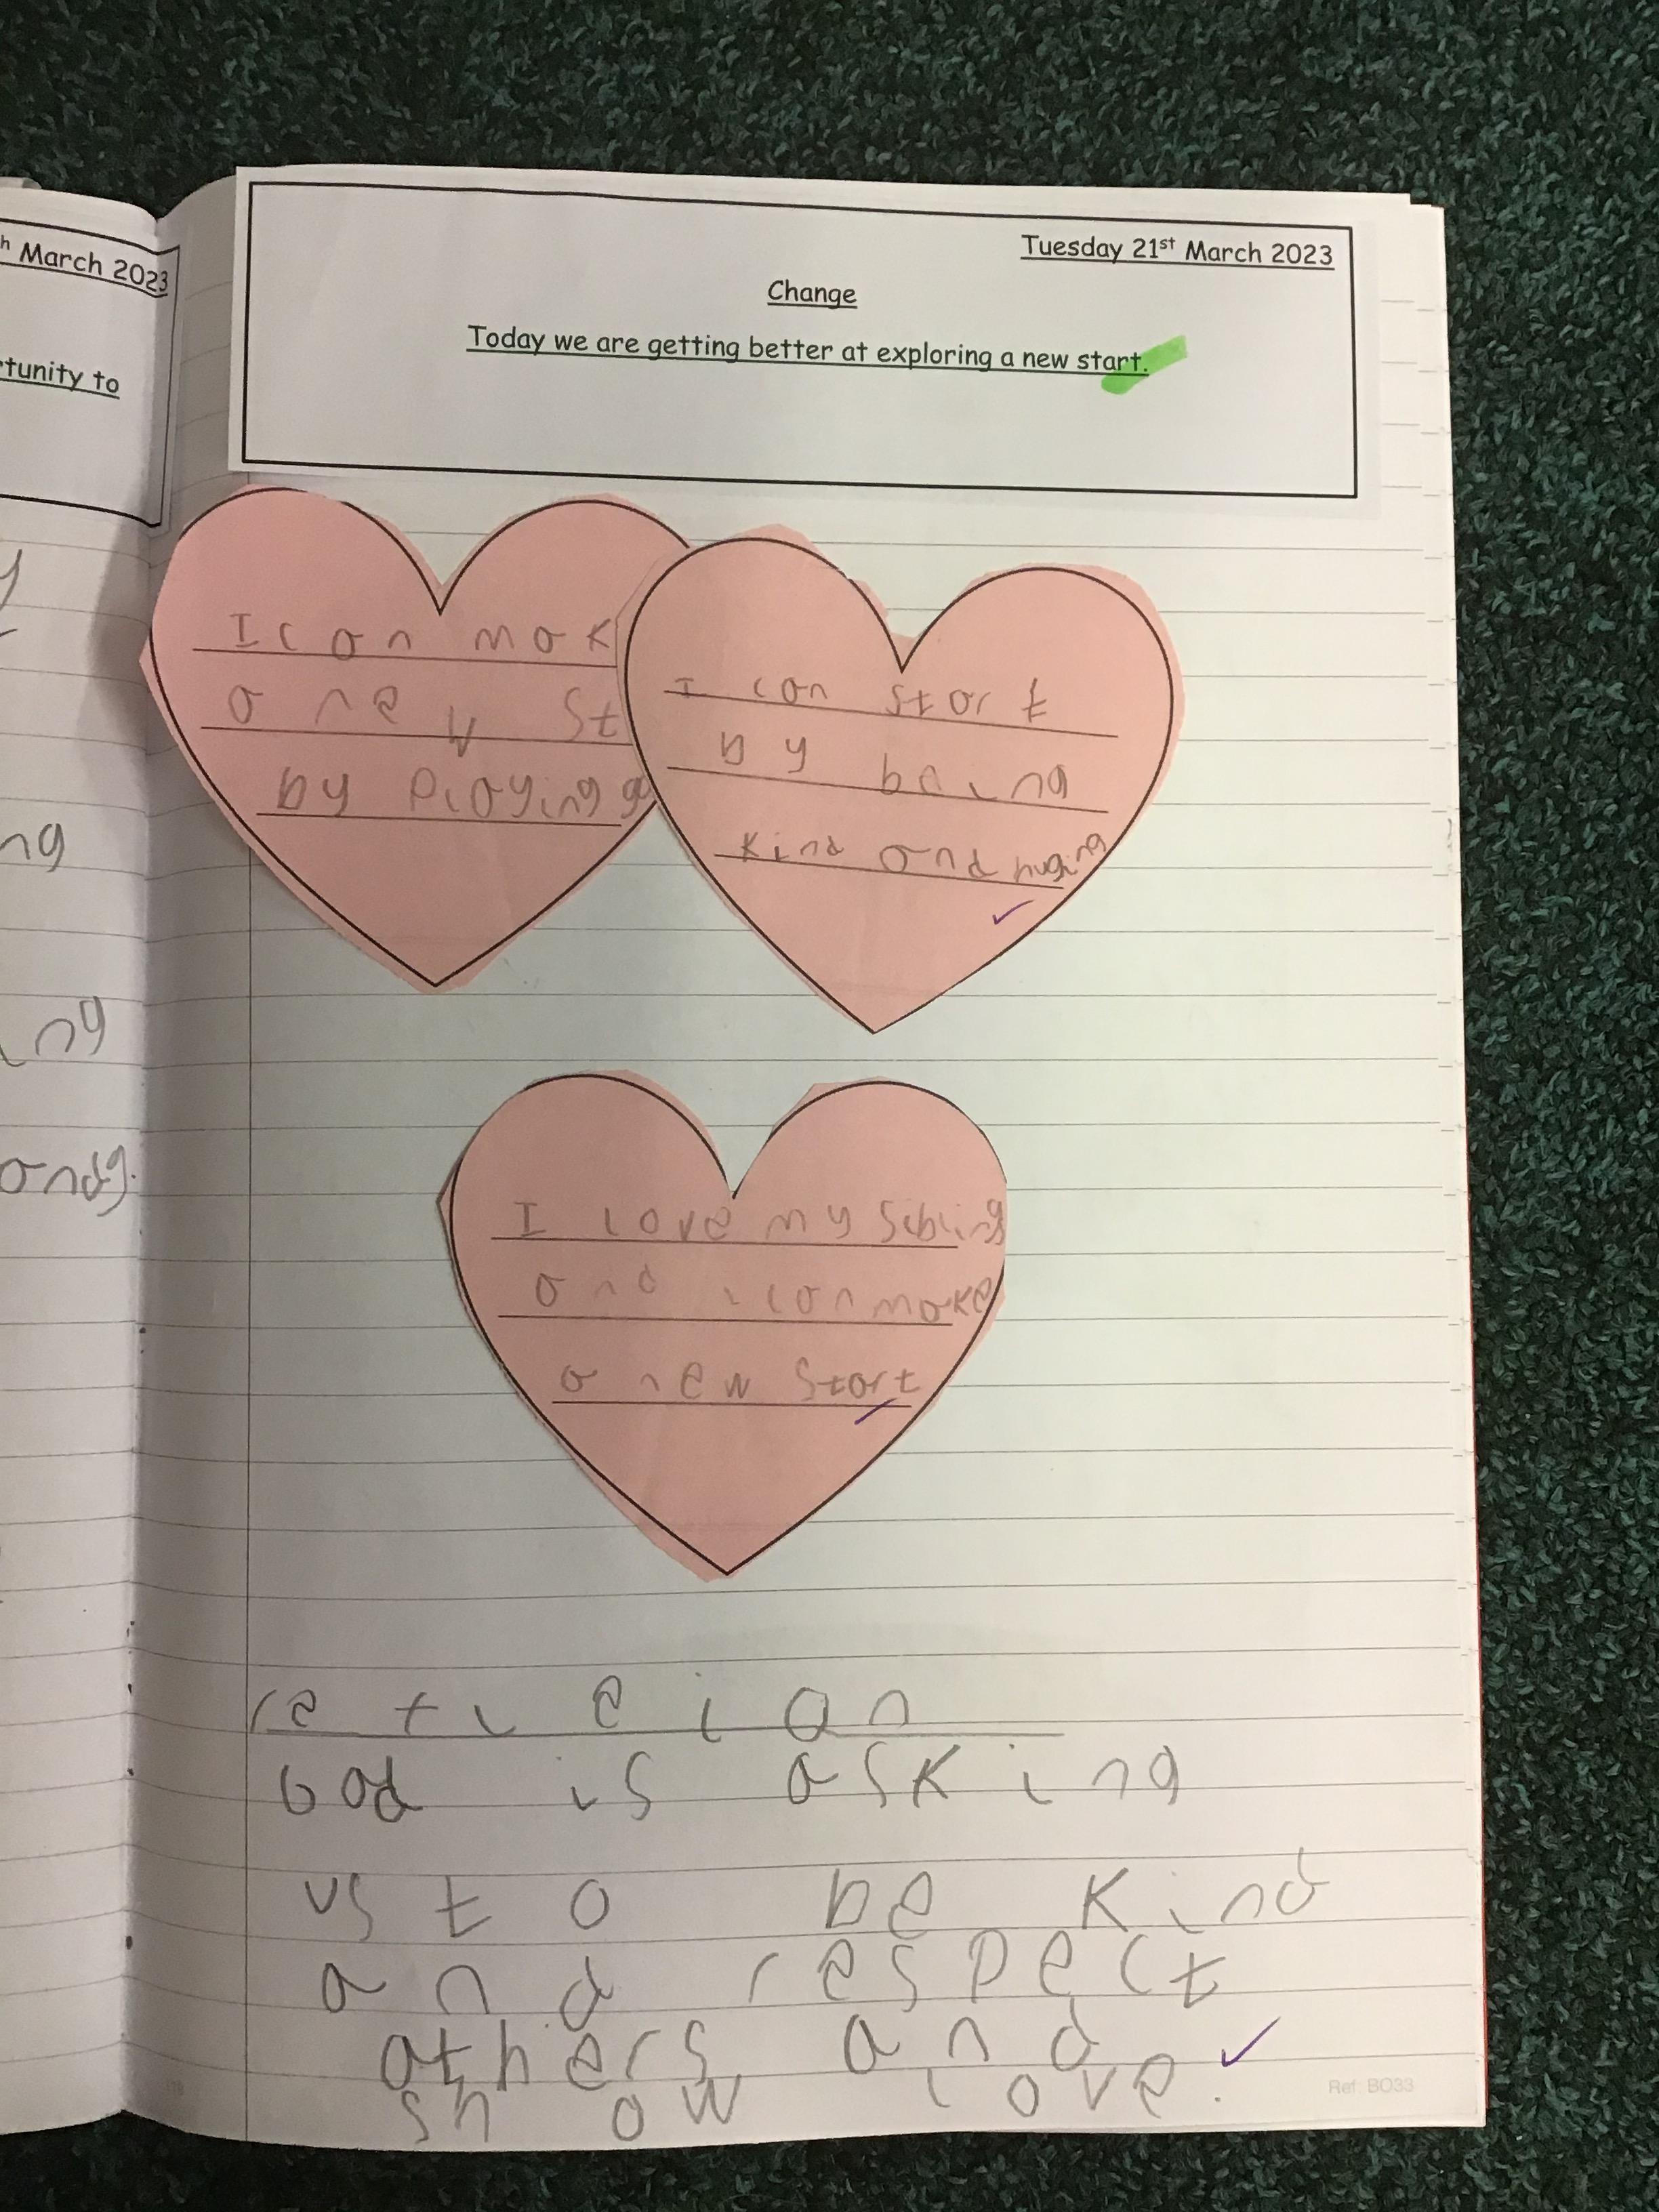 h March 2023
tunity to
y
ng
ng
andg.
Tuesday 21st March 2023
Change
Today we are getting better at exploring a new start.
I can mak
a new st
by playing
I can start
by being
kind and huging
I love my sibling
and i can make
a new start
God is asking
us to be kind
and respect
others and
show love.
Ref: BO33